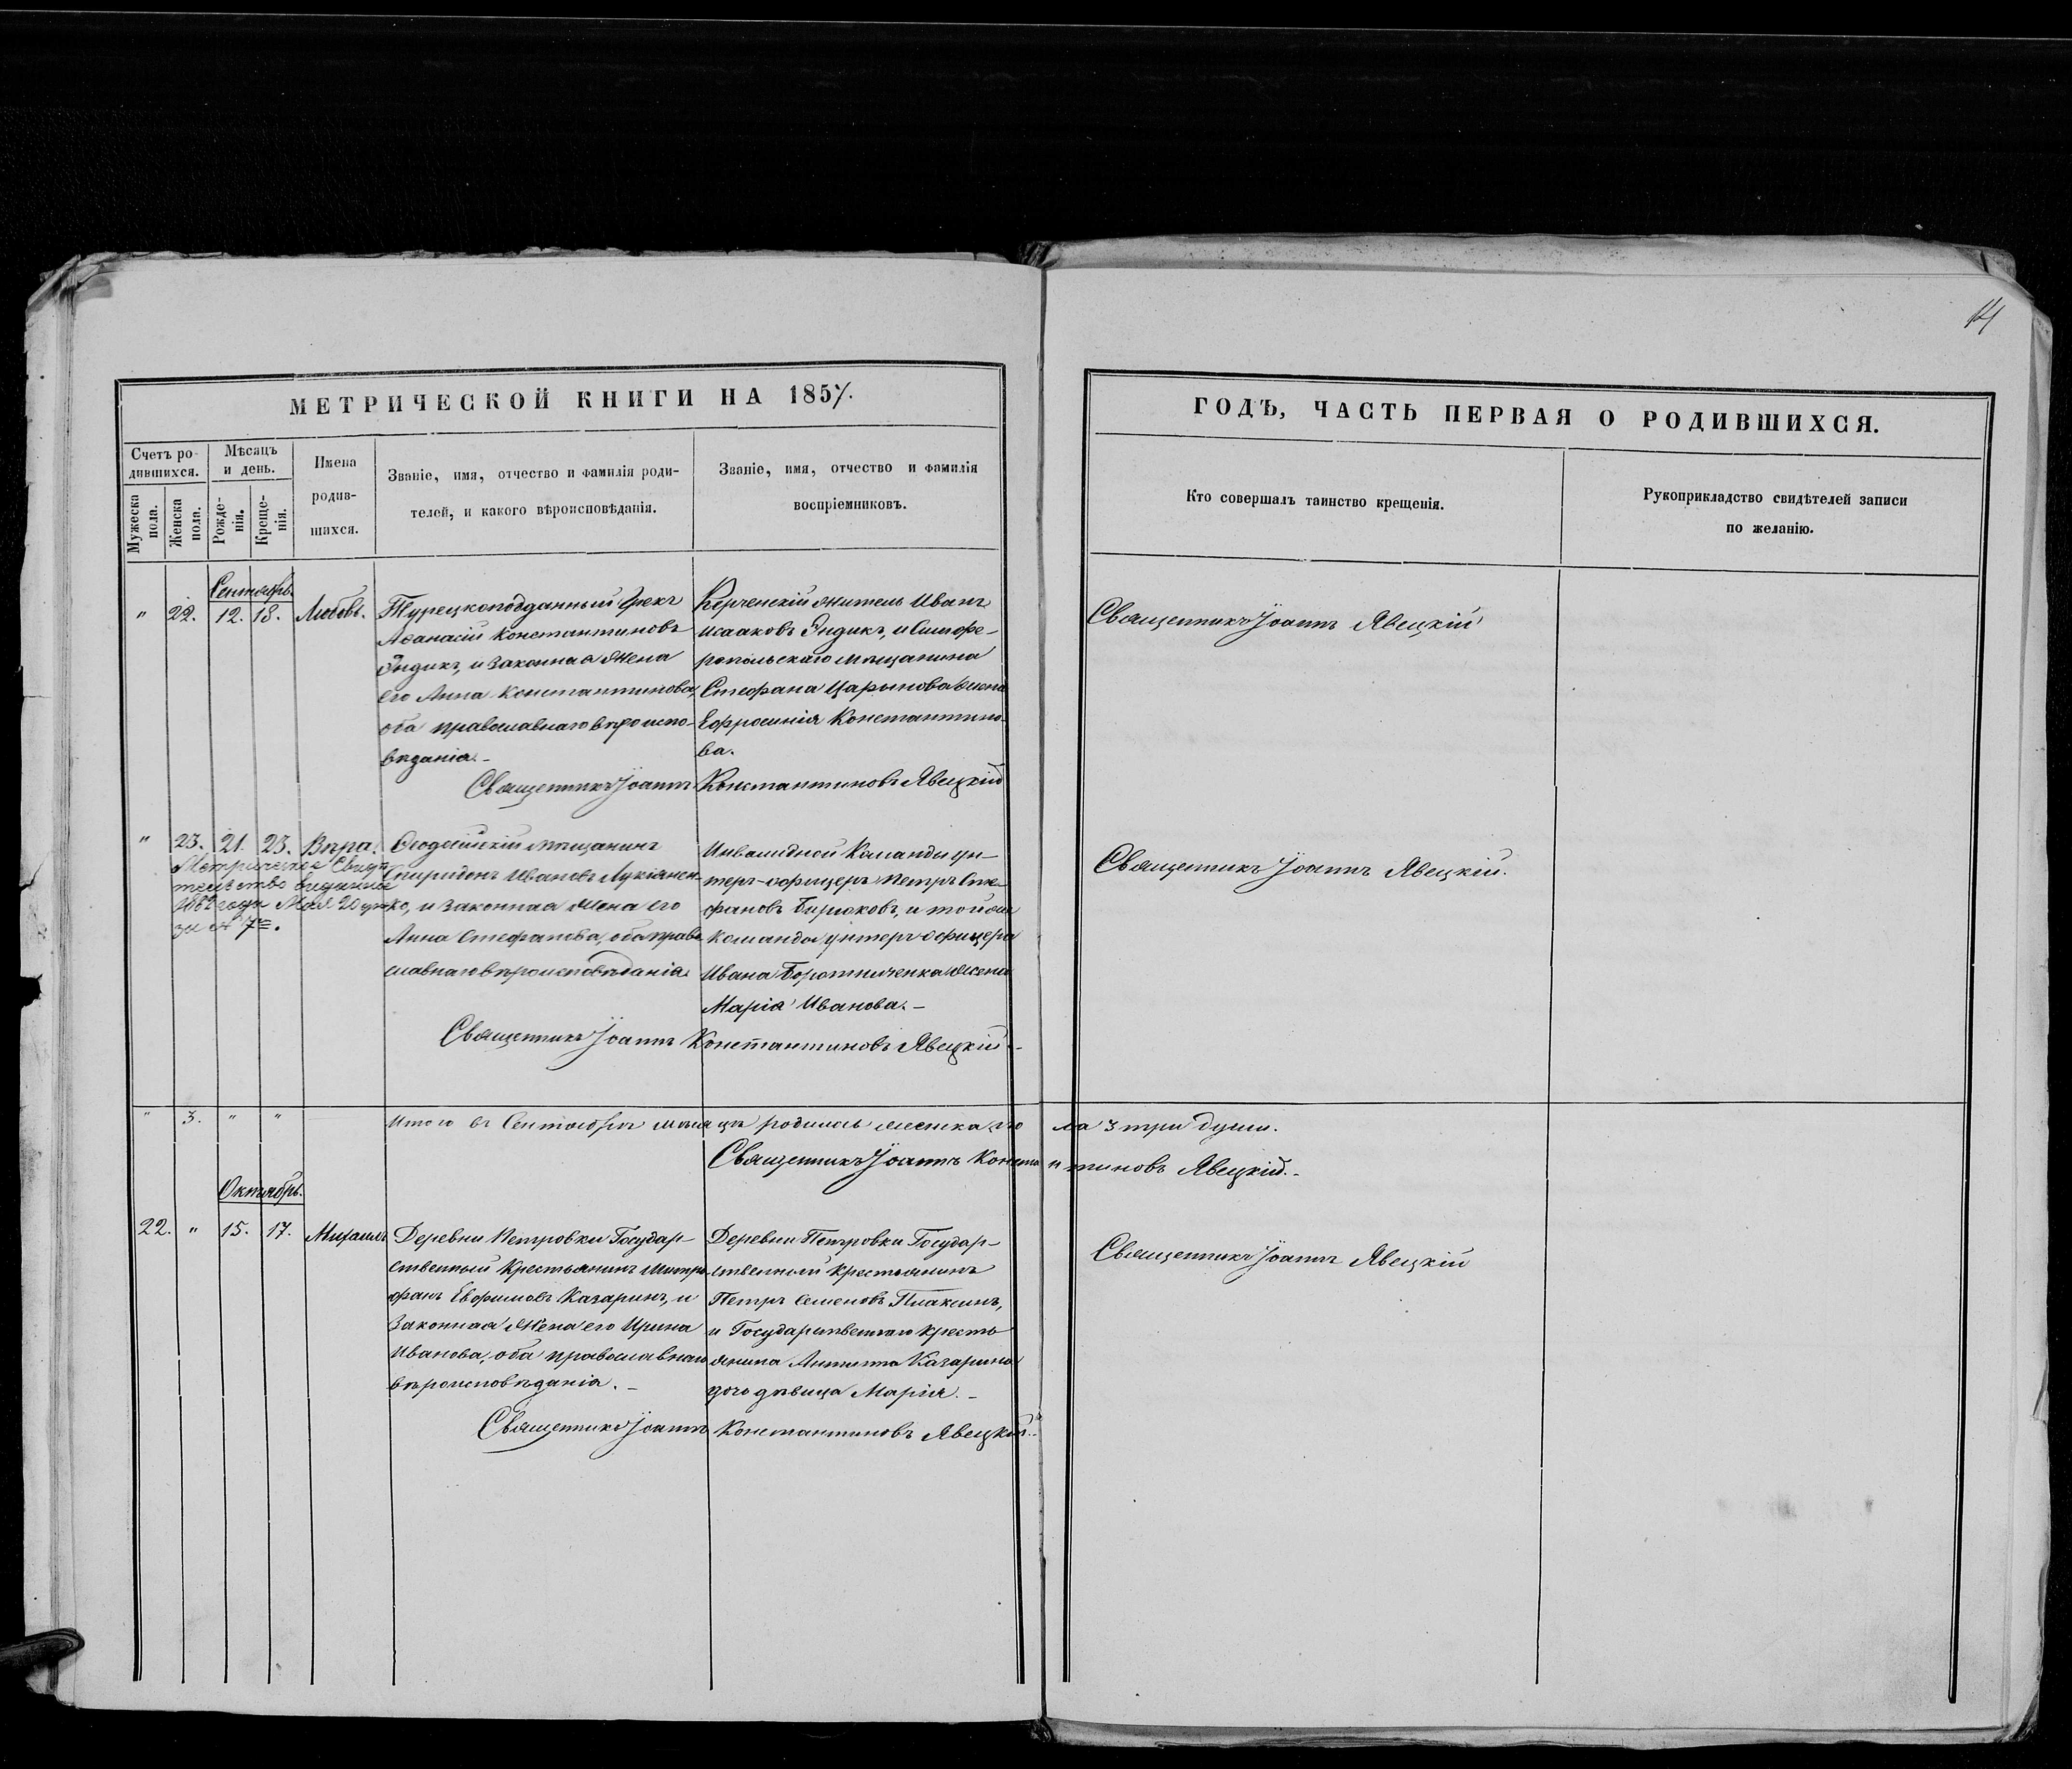 14
МЕТРИЧЕСКОЙ КНИГИ НА 1857.
Счетъ ро-
дившихся.
Мѣсяцъ
и день.
Мужеска
пола.
Женска
пола.
Рожде-
нія.
Креще-
нія.
Имена
родив-
шихся.
Званіе, имя, отчество и фамилія роди-
телей, и какого вѣроисповѣданія.
Званіе, имя, отчество и фамилія
воспріемниковъ.
ГОДЪ, ЧАСТЬ ПЕРВАЯ О РОДИВШИХСЯ.
Кто совершалъ таинство крещенія.
Рукоприкладство свидѣтелей записи
по желанію.
Сентябрь.
" 22. 12. 18. Любовь.
Турецкоподданный Грекъ
Аѳанасій Константиновъ
Эндикъ, и законная жена
его Анна Константинова,
оба православнаго вѣроиспо-
вѣданія.-
Керченскій житель Иванъ
Исааковъ Эндикъ, и Симфе-
ропольскаго мѣщанина
Стефана Царынова жена
Ефросинія Константино-
ва.
Священникъ Іоаннъ Константиновъ Явецкій
Священникъ Іоаннъ Явецкій
" 23. 21. 23. Вѣра.
Метрическое Свидѣ-
тельство выданное
1882 года Мая 20 дня
за № 7м.
Ѳеодосійскій мѣщанинъ
Спиридонъ Ивановъ Лукіянен-
ко, и законная жена его
Анна Стефанова, оба право-
славнаго вѣроисповѣданія.
Инвалидной Команды ун-
теръ-офицеръ Петръ Сте-
фановъ Бирюковъ, и той же
команды унтеръ-офицера
Ивана Боротниченка жена
Марія Иванова.-
Священникъ Іоаннъ Константиновъ Явецкій.-
Священникъ Іоаннъ Явецкій.
" 3. " " Итого въ Сентябрѣ мѣсяцѣ родилось женска по ла 3 три души.
Священникъ Іоаннъ Конста нтиновъ Явецкій.-
Октябрь.
22. " 15. 17. Михаилъ
Деревни Петровки Государ-
ственный Крестьянинъ Митро-
фанъ Евфимовъ Казаринъ, и
законная жена его Ирина
Иванова, оба православнаго
вѣроисповѣданія.-
Деревни Петровки Государ-
ственный крестьянинъ
Петръ Семеновъ Плаксинъ,
и Государственнаго кресть-
янина Антипа Казарина
дочь дѣвица Марія.-
Священникъ Іоаннъ Константиновъ Явецкій.-
Священникъ Іоаннъ Явецкій